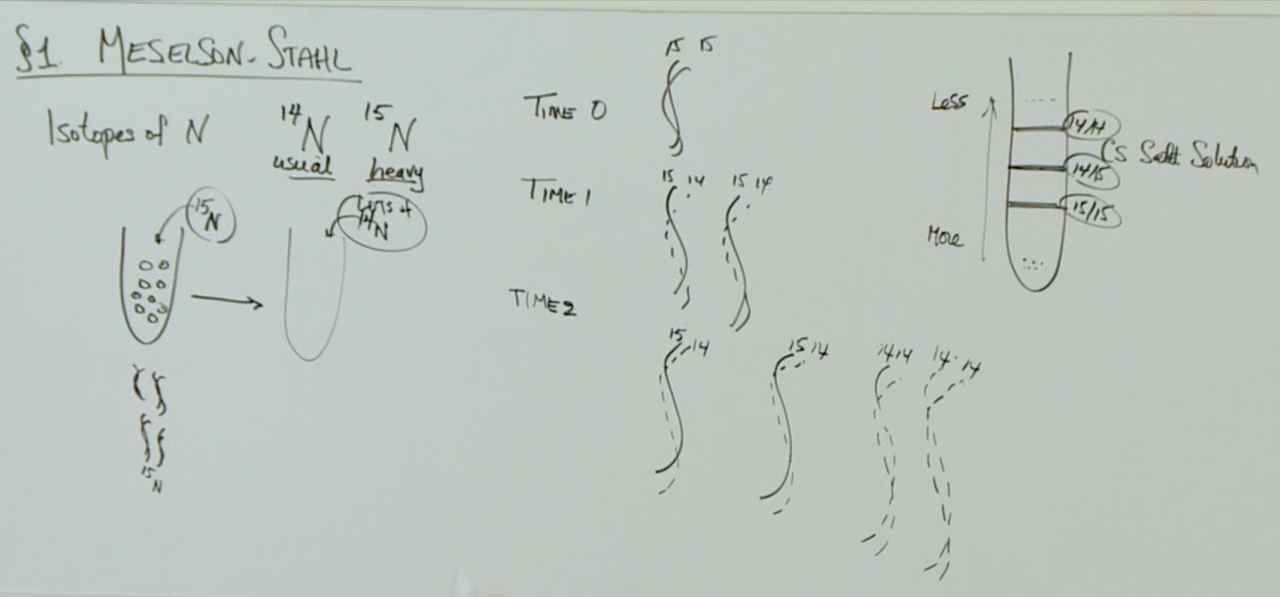 §1. MESELSON-STAHL
Isotopes of N
14N
usual
15N
heavy
15N
Lots of
14N
15N
TIME 0
15 15
TIME 1
15 14
15 14
TIME 2
15 14
15 14
14 14
14 14
Less
More
14/14
14/15
15/15
Cs Salt Solution